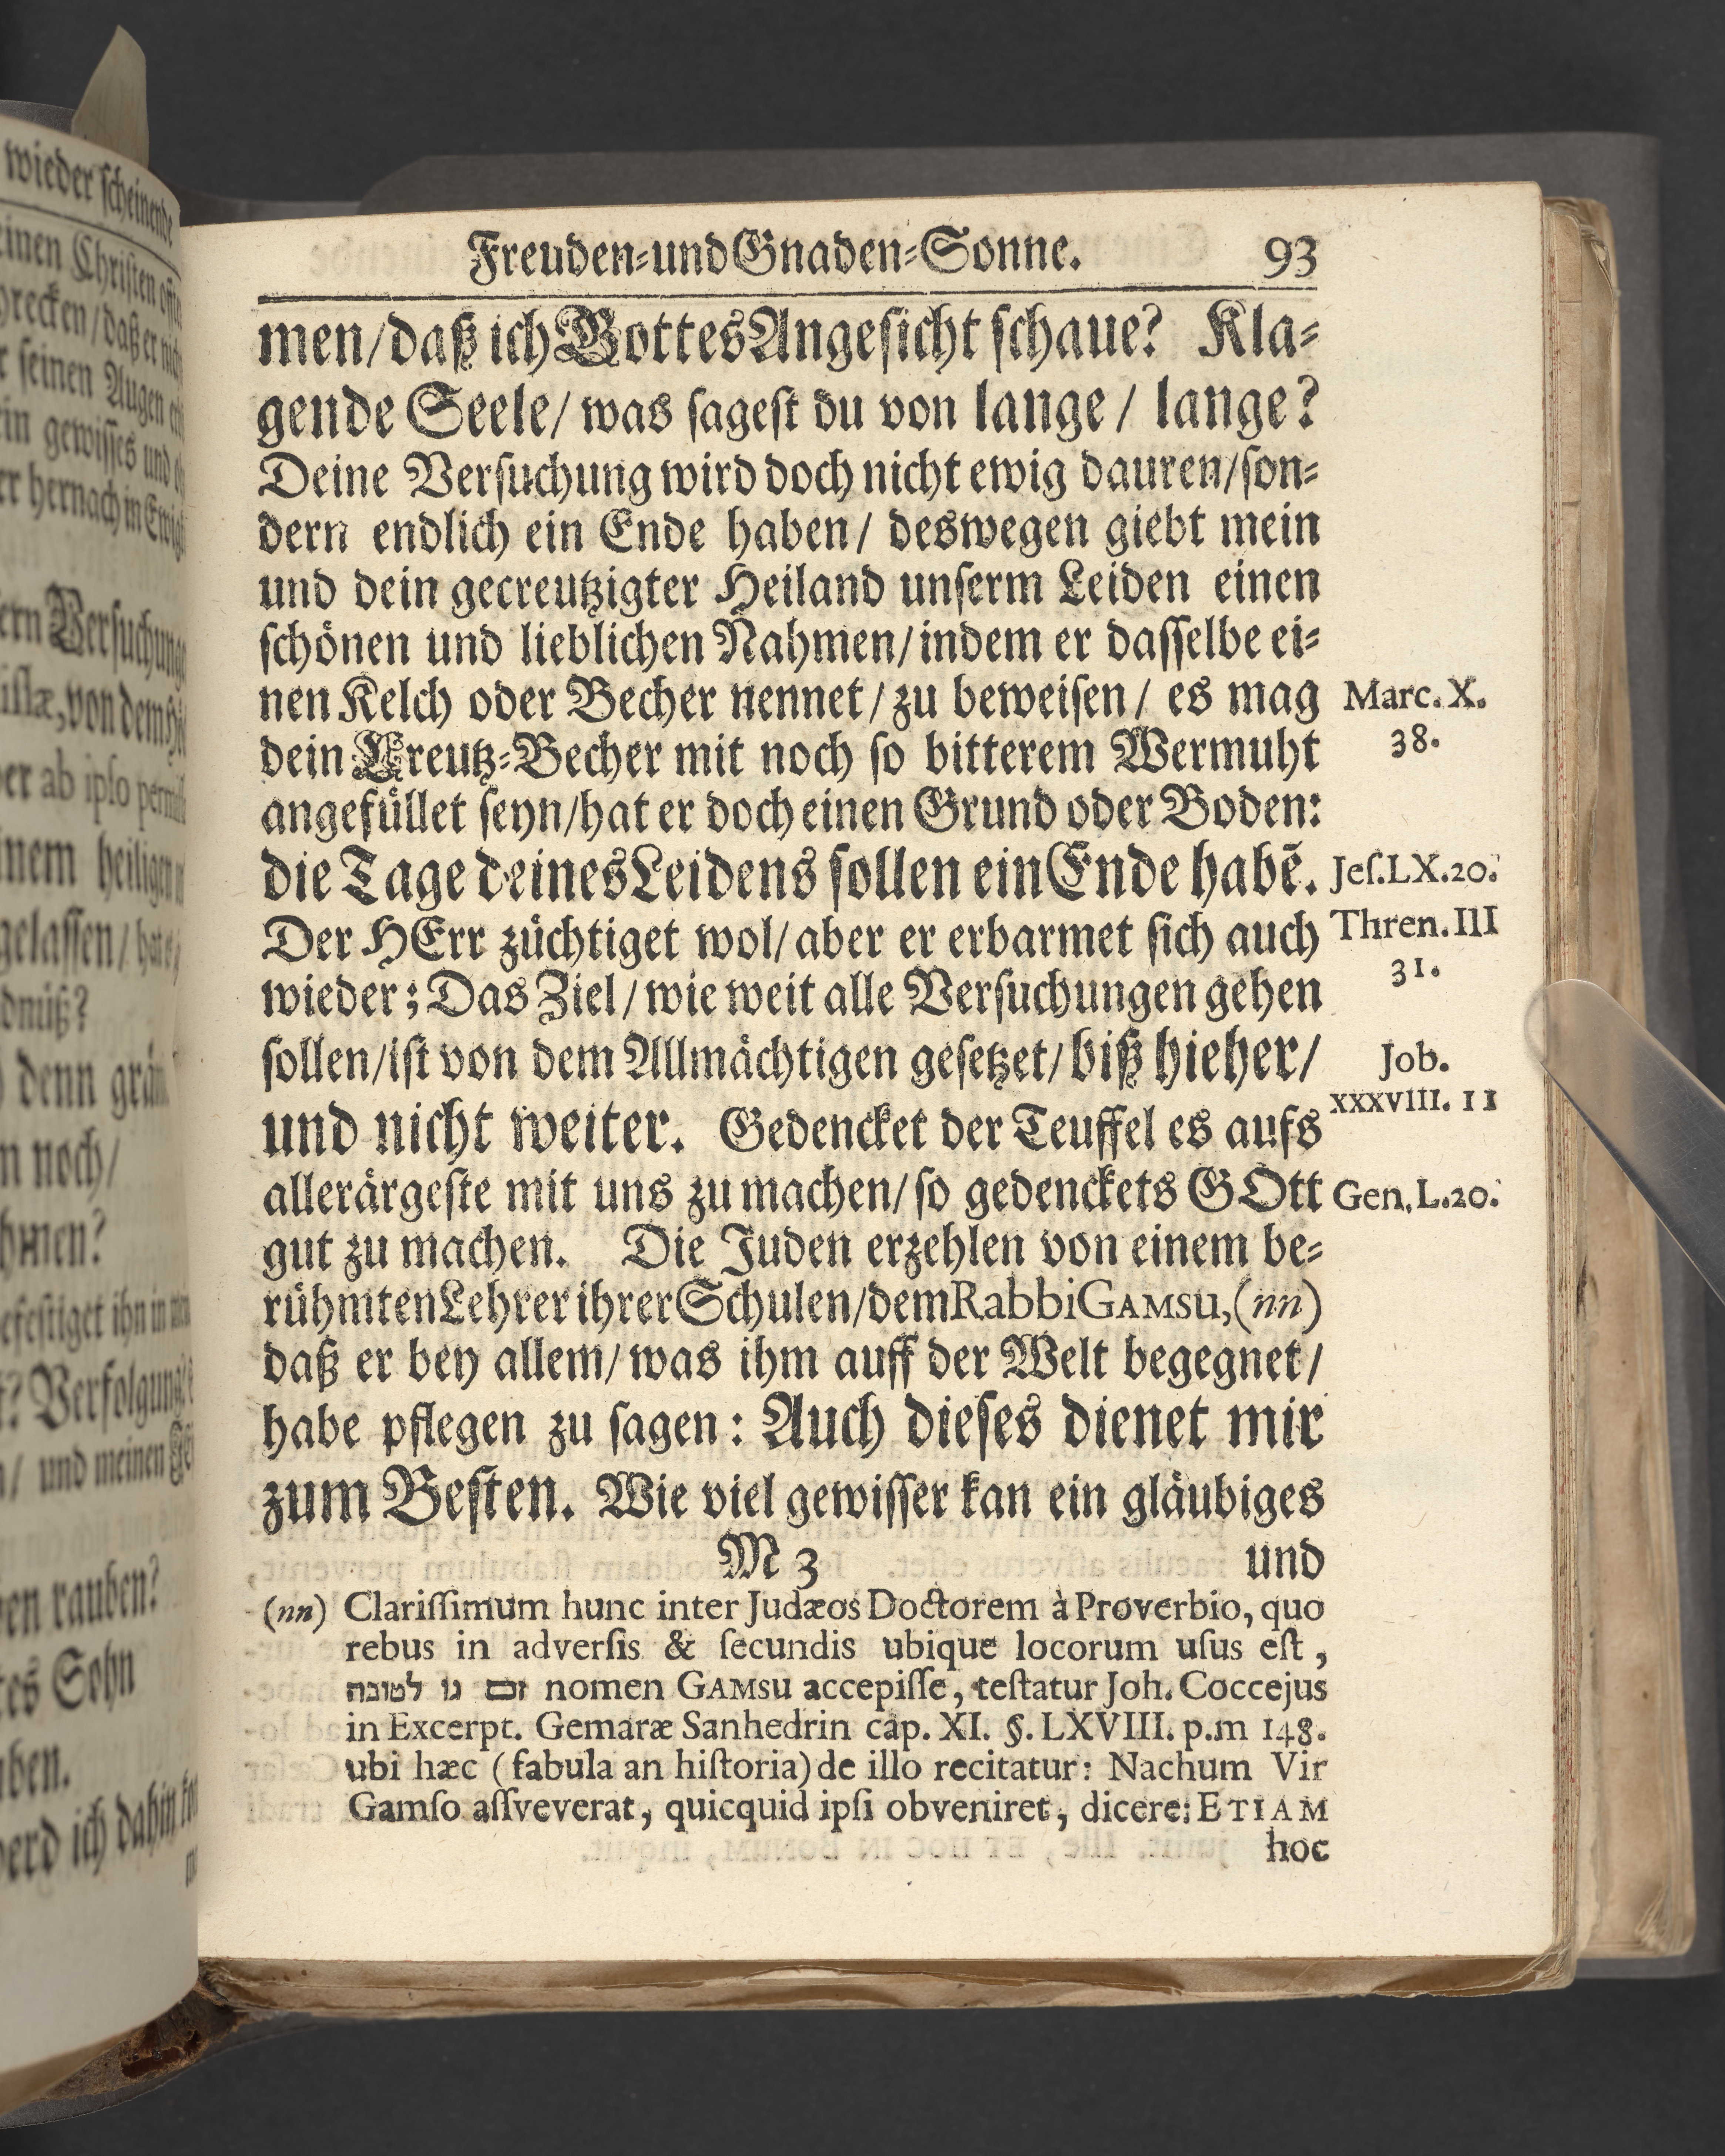 wieder scheinende
einen Christen
recken/daß er
seinen Augen
gewisses und
hernach in
Versuchung
von dem
ab ipso
heiligen
gelassen/
denn
noch/
ihn in
Verfolgung
und meinen
rauben?
Sohn
ich dahin
Freuden-und Gnaden-Sonne. 93
men/daß ich Gottes Angesicht schaue? Kla-
gende Seele/ was sagest du von lange/ lange?
Deine Versuchung wird doch nicht ewig dauren/son-
dern endlich ein Ende haben/ deswegen giebt mein
und dein gecreutzigter Heiland unserm Leiden einen
schönen und lieblichen Nahmen/indem er dasselbe ei-
nen Kelch oder Becher nennet/zu beweisen/ es mag
dein Kreutz-Becher mit noch so bitterem Wermuht
angefüllet seyn/hat er doch einen Grund oder Boden:
die Tage deines Leidens sollen ein Ende habē.
Der HErr züchtiget wol/aber er erbarmet sich auch
wieder; Das Ziel/wie weit alle Versuchungen gehen
sollen/ist von dem Allmächtigen gesetzet/biß hieher/
und nicht weiter. Gedencket der Teuffel es aufs
allerärgeste mit uns zu machen/so gedenckets GOtt
gut zu machen. Die Juden erzehlen von einem be-
rühmten Lehrer ihrer Schulen/dem Rabbi GAMSU,(nn)
daß er bey allem/was ihm auff der Welt begegnet/
habe pflegen zu sagen: Auch dieses dienet mir
zum Besten. Wie viel gewisser kan ein gläubiges
M 3 und
Marc. X.
38.
Jes. LX. 20.
Thren. III
31.
Job.
XXXVIII. 11
Gen. L. 20.
(nn) Clarissimum hunc inter Judæos Doctorem à Proverbio, quo
rebus in adversis & secundis ubique locorum usus est,
גו לטובה nomen GAMSU accepisse, testatur Joh. Coccejus
in Excerpt. Gemaræ Sanhedrin cap. XI. §. LXVIII. p.m 148.
ubi hæc (fabula an historia) de illo recitatur: Nachum Vir
Gamso assveverat, quicquid ipsi obveniret, dicere: ETIAM
hoc